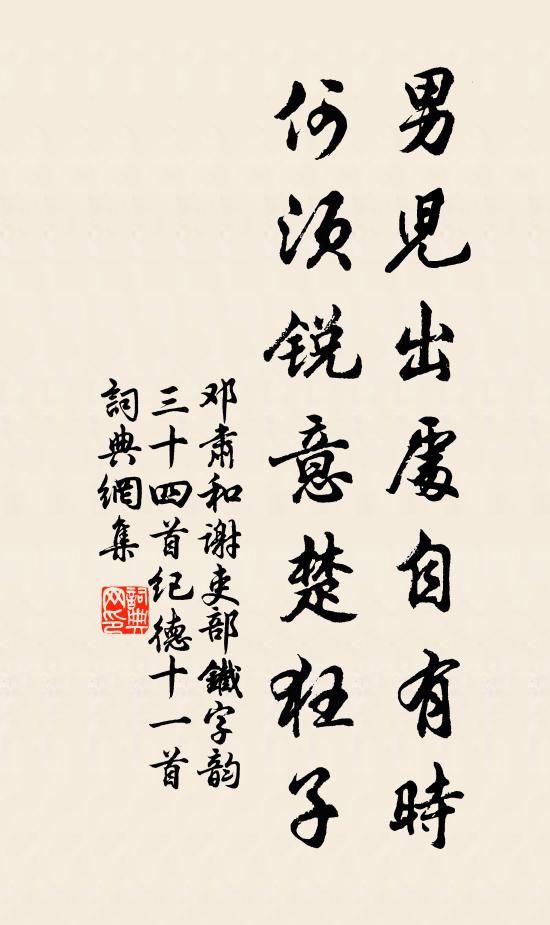 男兒出處自有時
何須銳意楚狂子
邓肅和谢吏部鐵字韵
三十四首纪德十一首
詞典網集
詞典网印